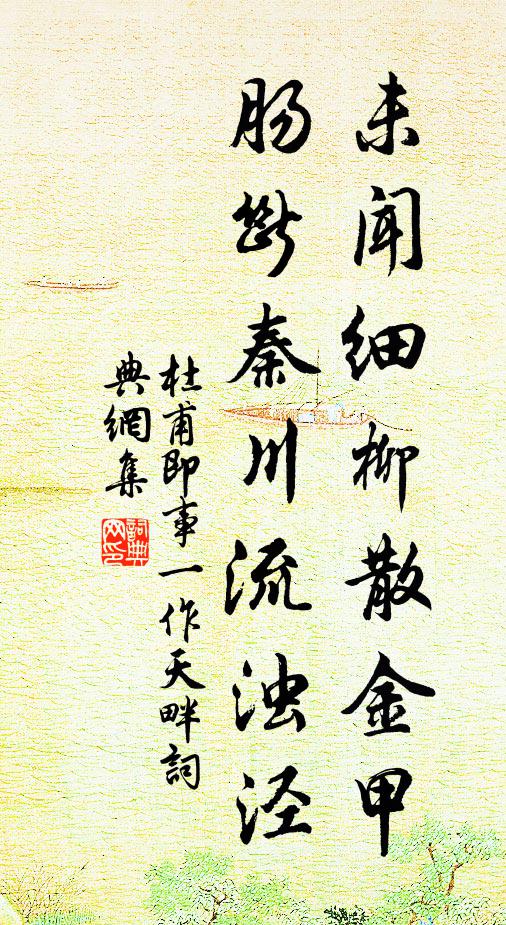 未闻细柳散金甲
肠断秦川流浊泾
杜甫即事一作天畔詞
典網集
詞典
网印